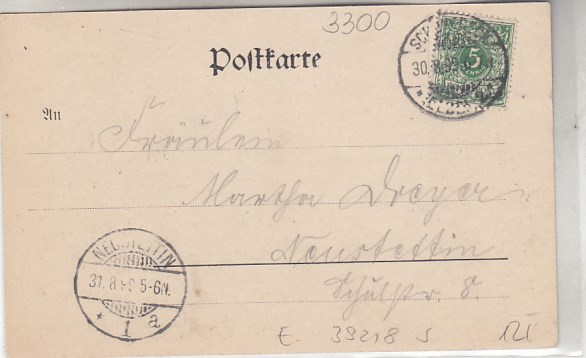 3300
Postkarte
5
30.8.99
An
Fräulein
Martha Dreyer
Neustettin
Schulstr. 8.
NEUSTETTIN
31.8.99 5-6N.
* 1 a
E. 39218 s